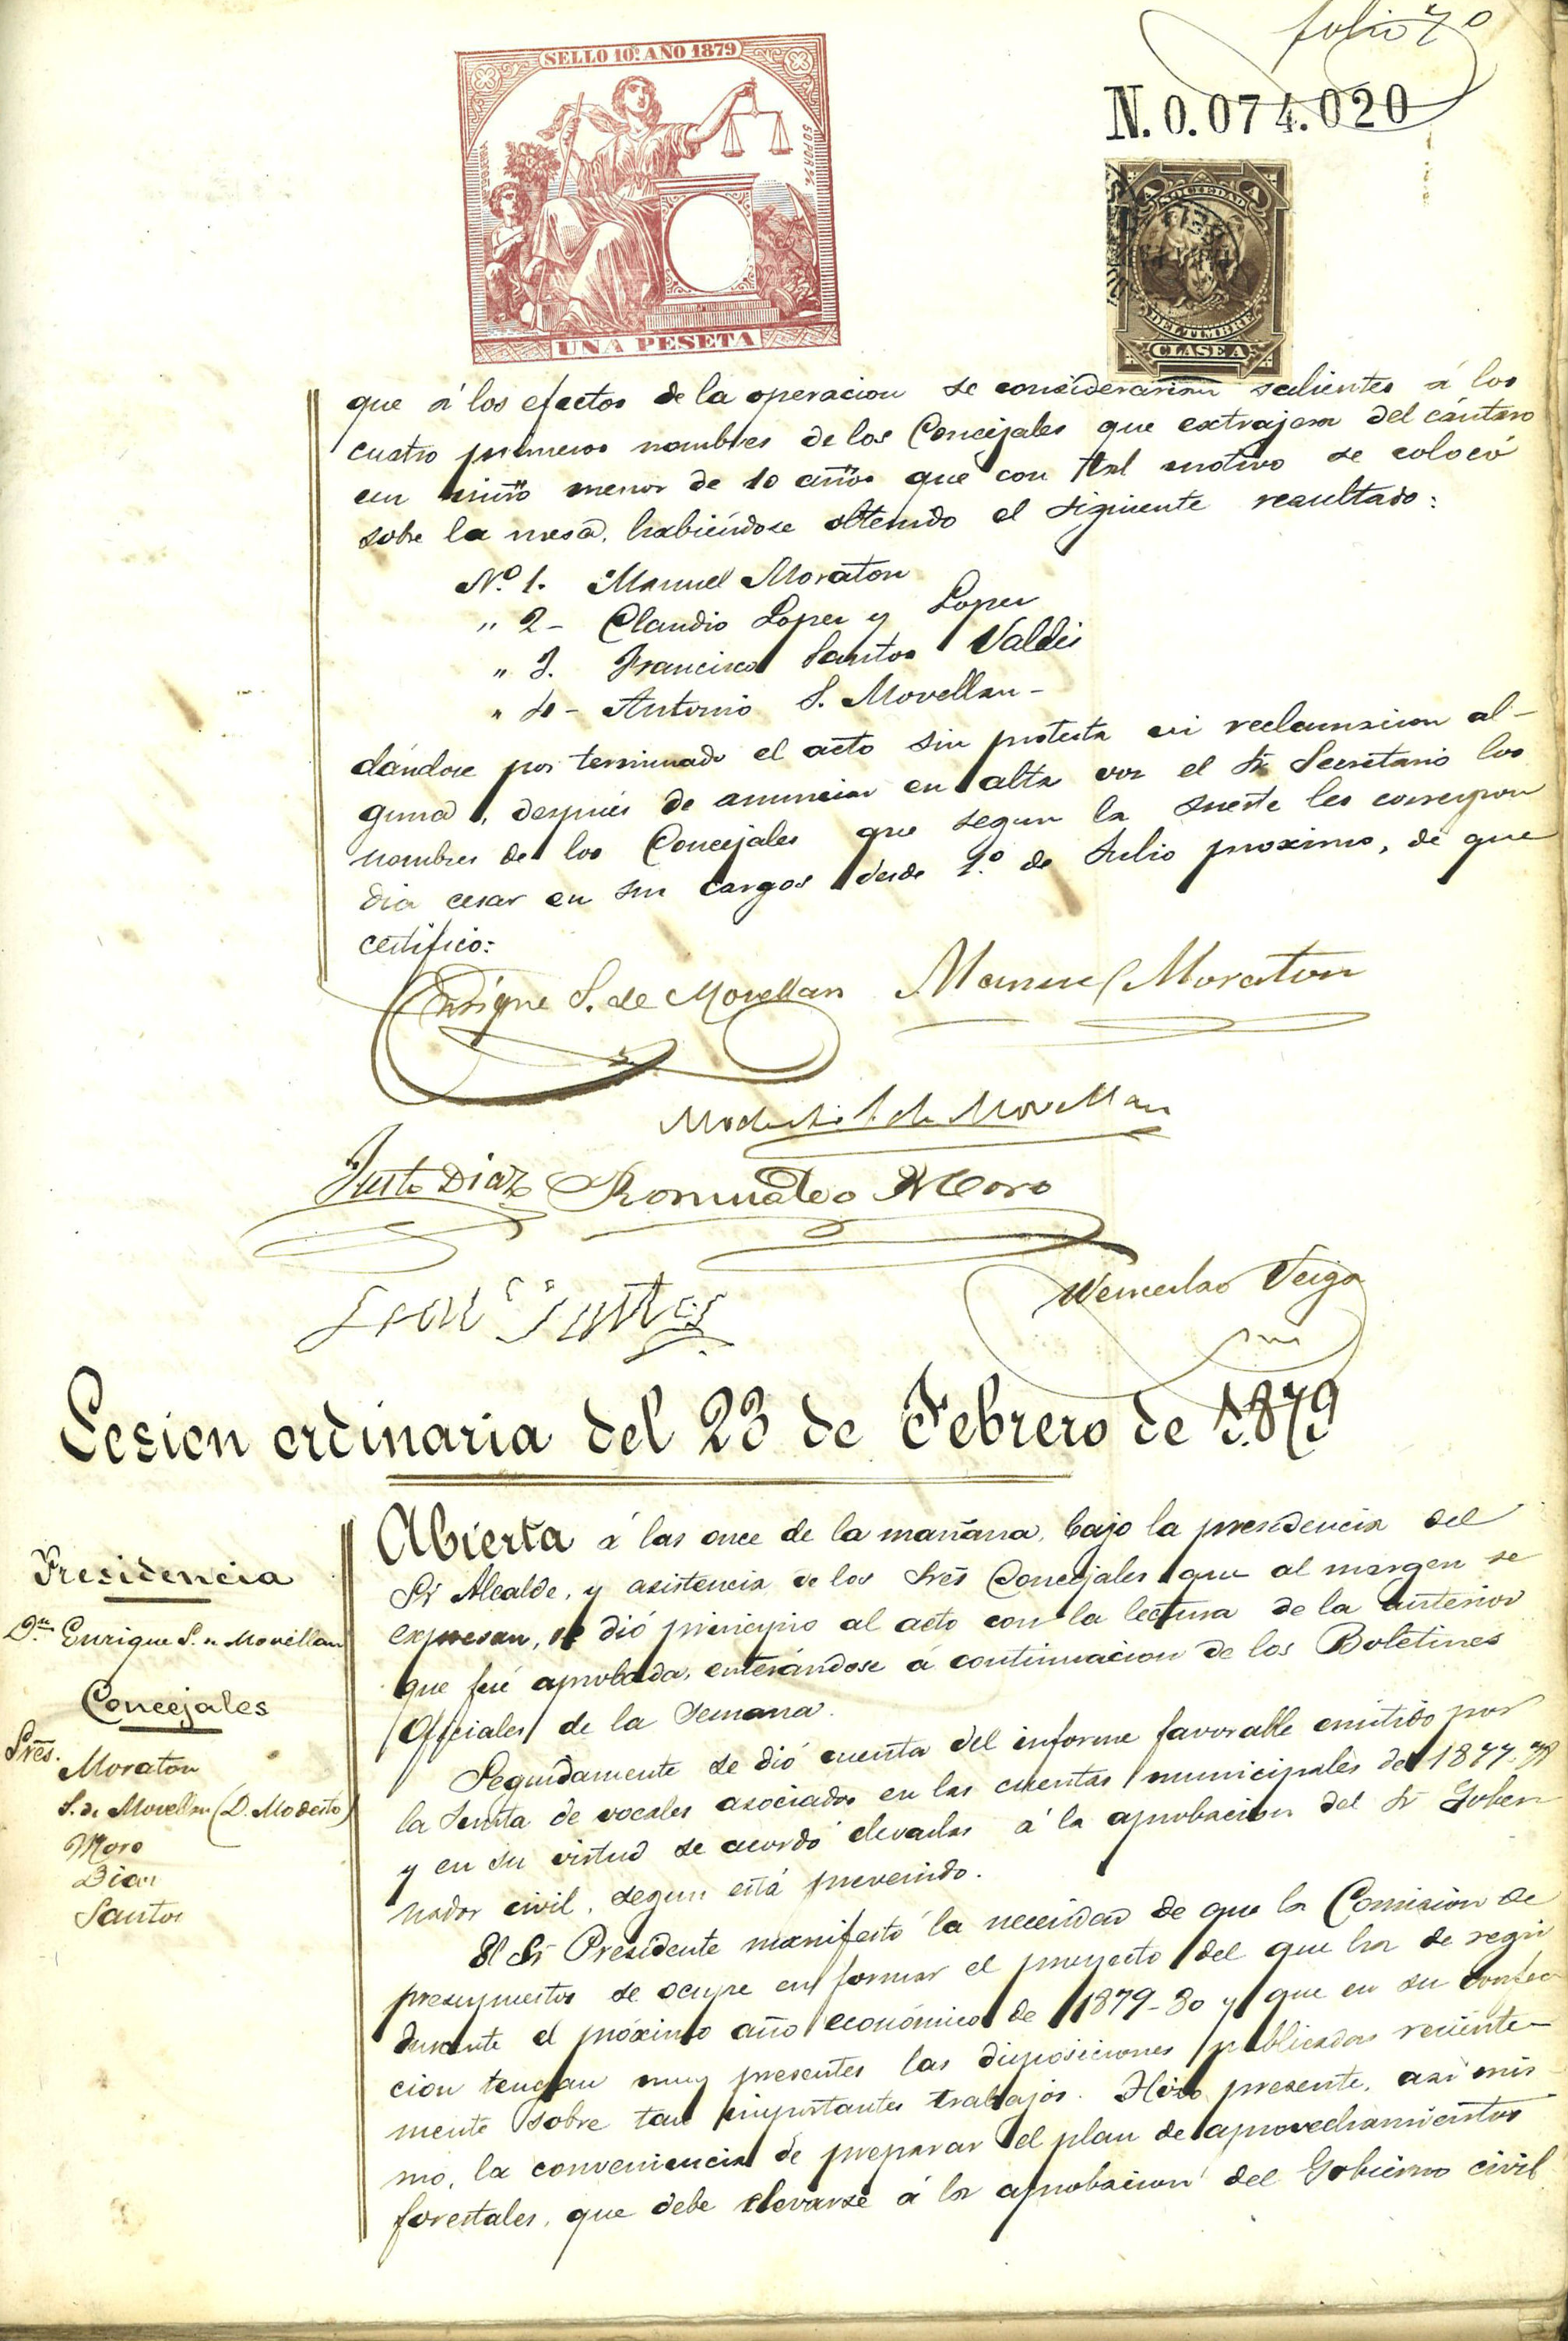 folio 70
SELLO 10º AÑO 1879
UNA PESETA
N. 0.074.020
DEL TIMBRE
CLASE A
que á los efectos de la operacion se considerarian salientes á los
cuatro primeros nombres de los Concejales que extrajera del cántaro
un niño menor de 10 años que con tal motivo se colocó
sobre la mesa, habiéndose obtenido el siguiente resultado:
Nº 1. Manuel Moraton
" 2 - Claudio Lopez y Lopez
" 3. Francisco Santos Valdés
" 4 - Antonio S. Movellan -
dándose por terminado el acto sin protesta ni reclamacion al-
guna, después de anunciar en alta voz el Sr Secretario los
nombres de los Concejales que segun la suerte les correspon
dia cesar en sus cargos desde 1º de Julio proximo, de que
certifico:
Enrique S. de Movellan Manuel Moraton
Modesto S. de Movellan
Justo Diaz Romualdo Moro
Santos
Wenceslao Veiga
Sesion ordinaria del 23 de Febrero de 1.879
Presidencia
Dn Enrique S. de Movellan
Concejales
Sres.
Moraton
S. de Movellan (D. Modesto)
Moro
Diaz
Santos
Abierta á las once de la mañana, bajo la presidencia del
Sr Alcalde, y asistencia de los Sres Concejales que al margen se
expresan, se dió principio al acto con la lectura de la anterior
que fué aprobada, enterándose á continuacion de los Boletines
Oficiales de la Semana.
Seguidamente se dió cuenta del informe favorable emitido por
la Junta de vocales asociados en las cuentas municipales de 1877-78
y en su virtud se acordó elevarlas á la aprobacion del Sr Gober
nador civil, segun está prevenido.
El Sr Presidente manifestó la necesidad de que la Comision de
presupuestos se ocupe en formar el proyecto del que ha de regir
durante el próximo año económico de 1879-80 y que en su confec
cion tengan muy presentes las disposiciones publicadas reciente-
mente sobre tan importantes trabajos. Hizo presente, asi mis-
mo, la conveniencia de preparar el plan de aprovechamientos
forestales, que debe elevarse á la aprobacion del Gobierno civil